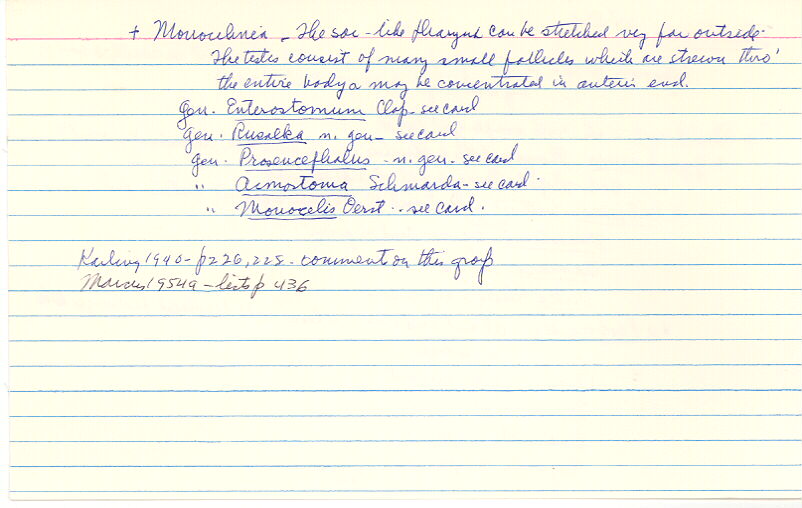 + Monocelinea - The sac-like pharynx can be stretched very far outside.
The testes consist of many small follicles which are strewn thro'
the entire body or may be concentrated in anterior end.
gen. Enterostomum Clap. see card
gen. Rusalka n. gen - see card
gen. Prosencephalus - n. gen. see card
" Acmostoma Schmarda - see card.
" Monocelis Oerst. - see card.
Karling 1940 - p 226, 228 - comment on this group
Marcus 1954a - lists p 436